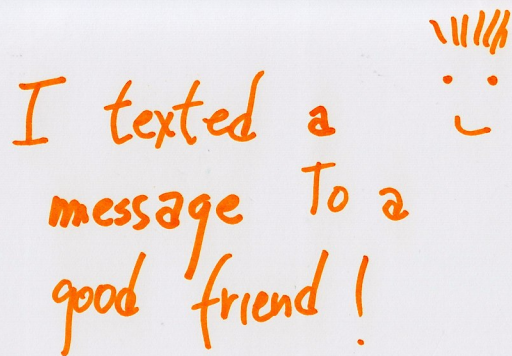 I texted a
message To a
good friend!